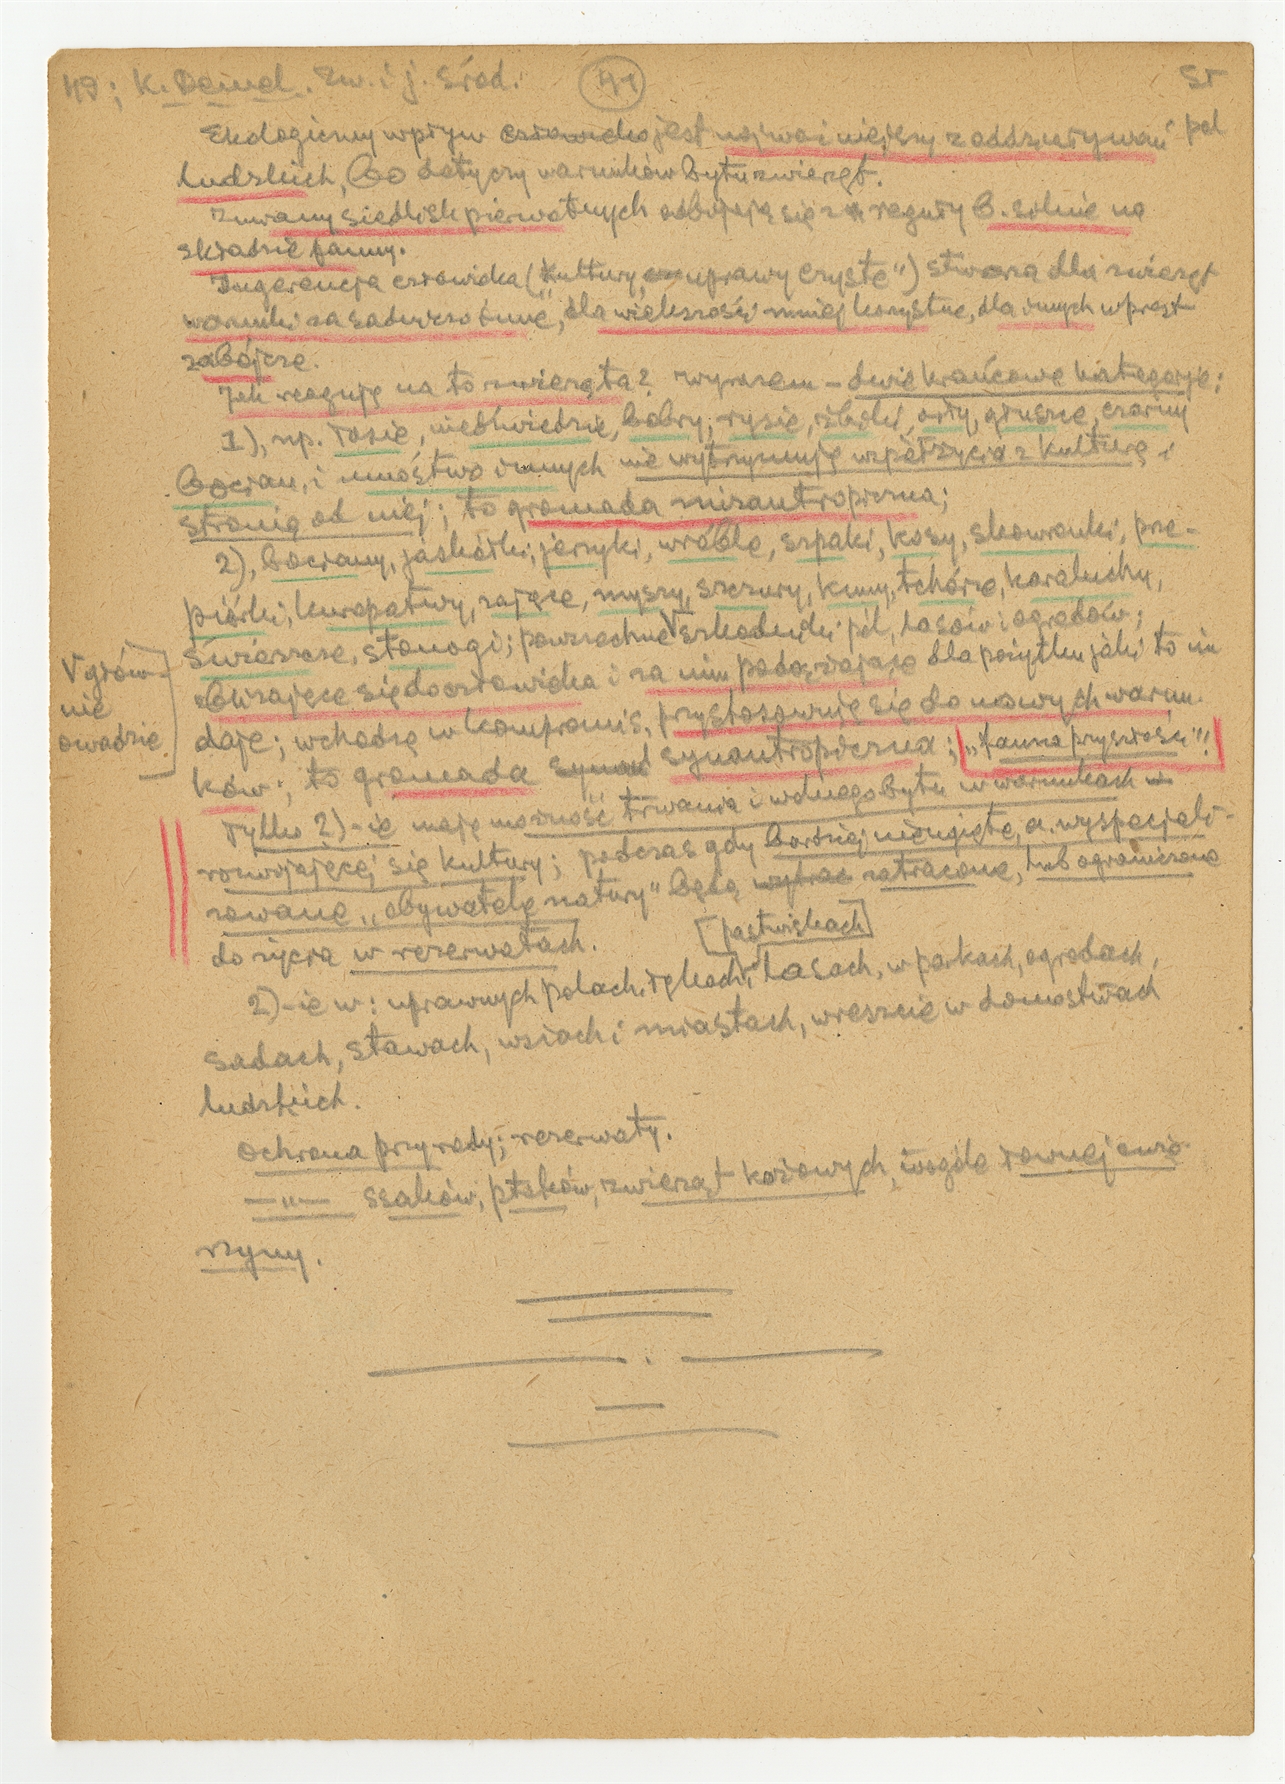 49; K. Demel. Zw. i j. środ. 41 ST
Ekologiczny wpływ człowieka jest najważniejszy z oddziaływań pol
ludzkich, bo dotyczy warunków bytu zwierząt.
Zmiany siedlisk pierwotnych odbijają się z reguły b. silnie na
składzie fauny.
Ingerencja człowieka („kultury, uprawy czyste") stwarza dla zwierząt
warunki zasadniczo inne, dla większości mniej korzystne, dla innych wprost
zabójcze.
Jak reagują na to zwierzęta? Wyrazem – dwie krańcowe kategorje:
1), np. łosie, niedźwiedzie, bobry, rysie, żbiki, orły, głuszce, czarny
bocian, i mnóstwo innych nie wytrzymują współżycia z kulturą i
stronią od niej; to gromada mizantropiczna;
2), bociany, jaskółki, jerzyki, wróble, szpaki, kosy, skowronki, prze-
piórki, kuropatwy, zające, myszy, szczury, kuny, tchórze, karaluchy,
świerszcze, stonogi; powszechne V szkodniki pól, lasów i ogrodów;
V głów-
nie
owadzie
zbliżające się do człowieka i za nim podążające dla pożytku jaki to im
daje; wchodzą w kompromis, przystosowują się do nowych warun-
ków; to gromada synantropiczna; „fauna przyszłości"!
Tylko 2)-ie mają możność trwania i wolnego bytu w warunkach
rozwijającej się kultury; podczas gdy bardziej nieugięte, a. wyspecjali-
zowane „obywatele natury" będą zatracone, lub ograniczone
do życia w rezerwatach.
[pastwiskach]
2)-ie w: uprawnych polach, łąkach, V lasach, w parkach, ogrodach,
sadach, stawach, wsiach i miastach, wreszcie w domostwach
ludzkich.
Ochrona przyrody; rezerwaty.
—„— ssaków, ptaków, zwierząt łownych, wogóle łownej zwie-
rzyny.